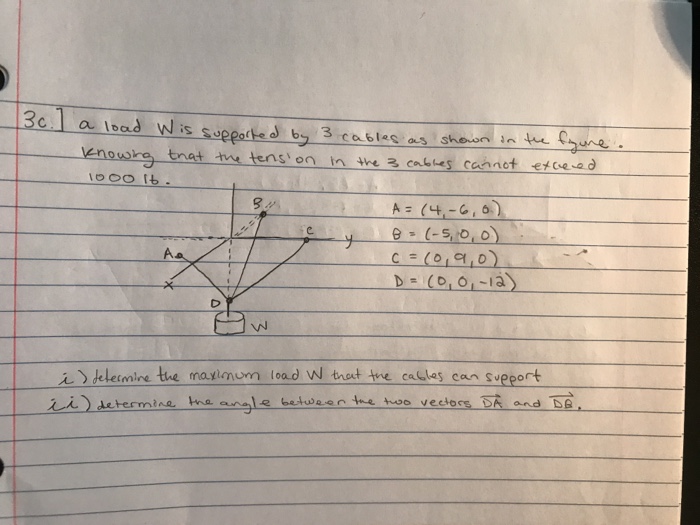 3c.] a load W is supported by 3 cables as shown in the figure.
Knowing that the tension in the 3 cables cannot exceed
1000 lb.
B
A = (4,-6,0)
C
y
B = (-5,0,0)
A
C = (0,9,0)
x
D = (0,0,-12)
D
W
i) determine the maximum load W that the cables can support
ii) determine the angle between the two vectors DA and DB.